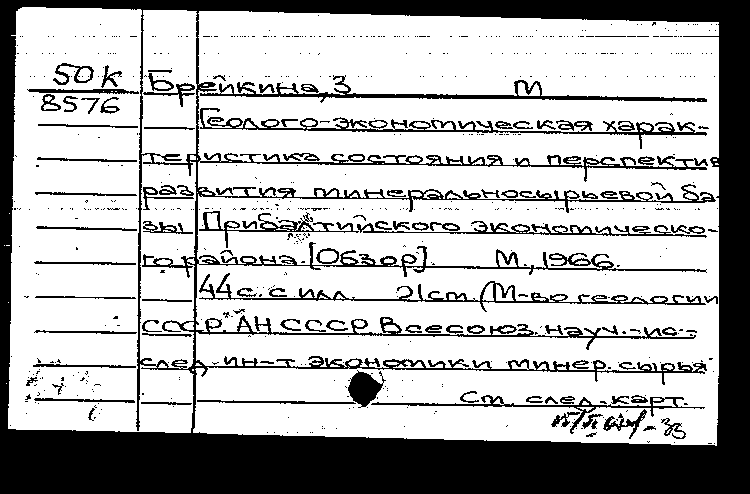 50к
8576
Брейкина, З М
Геолого-экономическая харак-
теристика состояния и перспектив
развития минеральносырьевой ба-
зы Прибалтийского экономическо-
го района. [Обзор]. М., 1966.
44 с. с илл. 21 см. (М-во геологии
СССР. АН СССР. Всесоюз. науч.-ис-
след. ин-т экономики минер. сырья
См. след. карт.